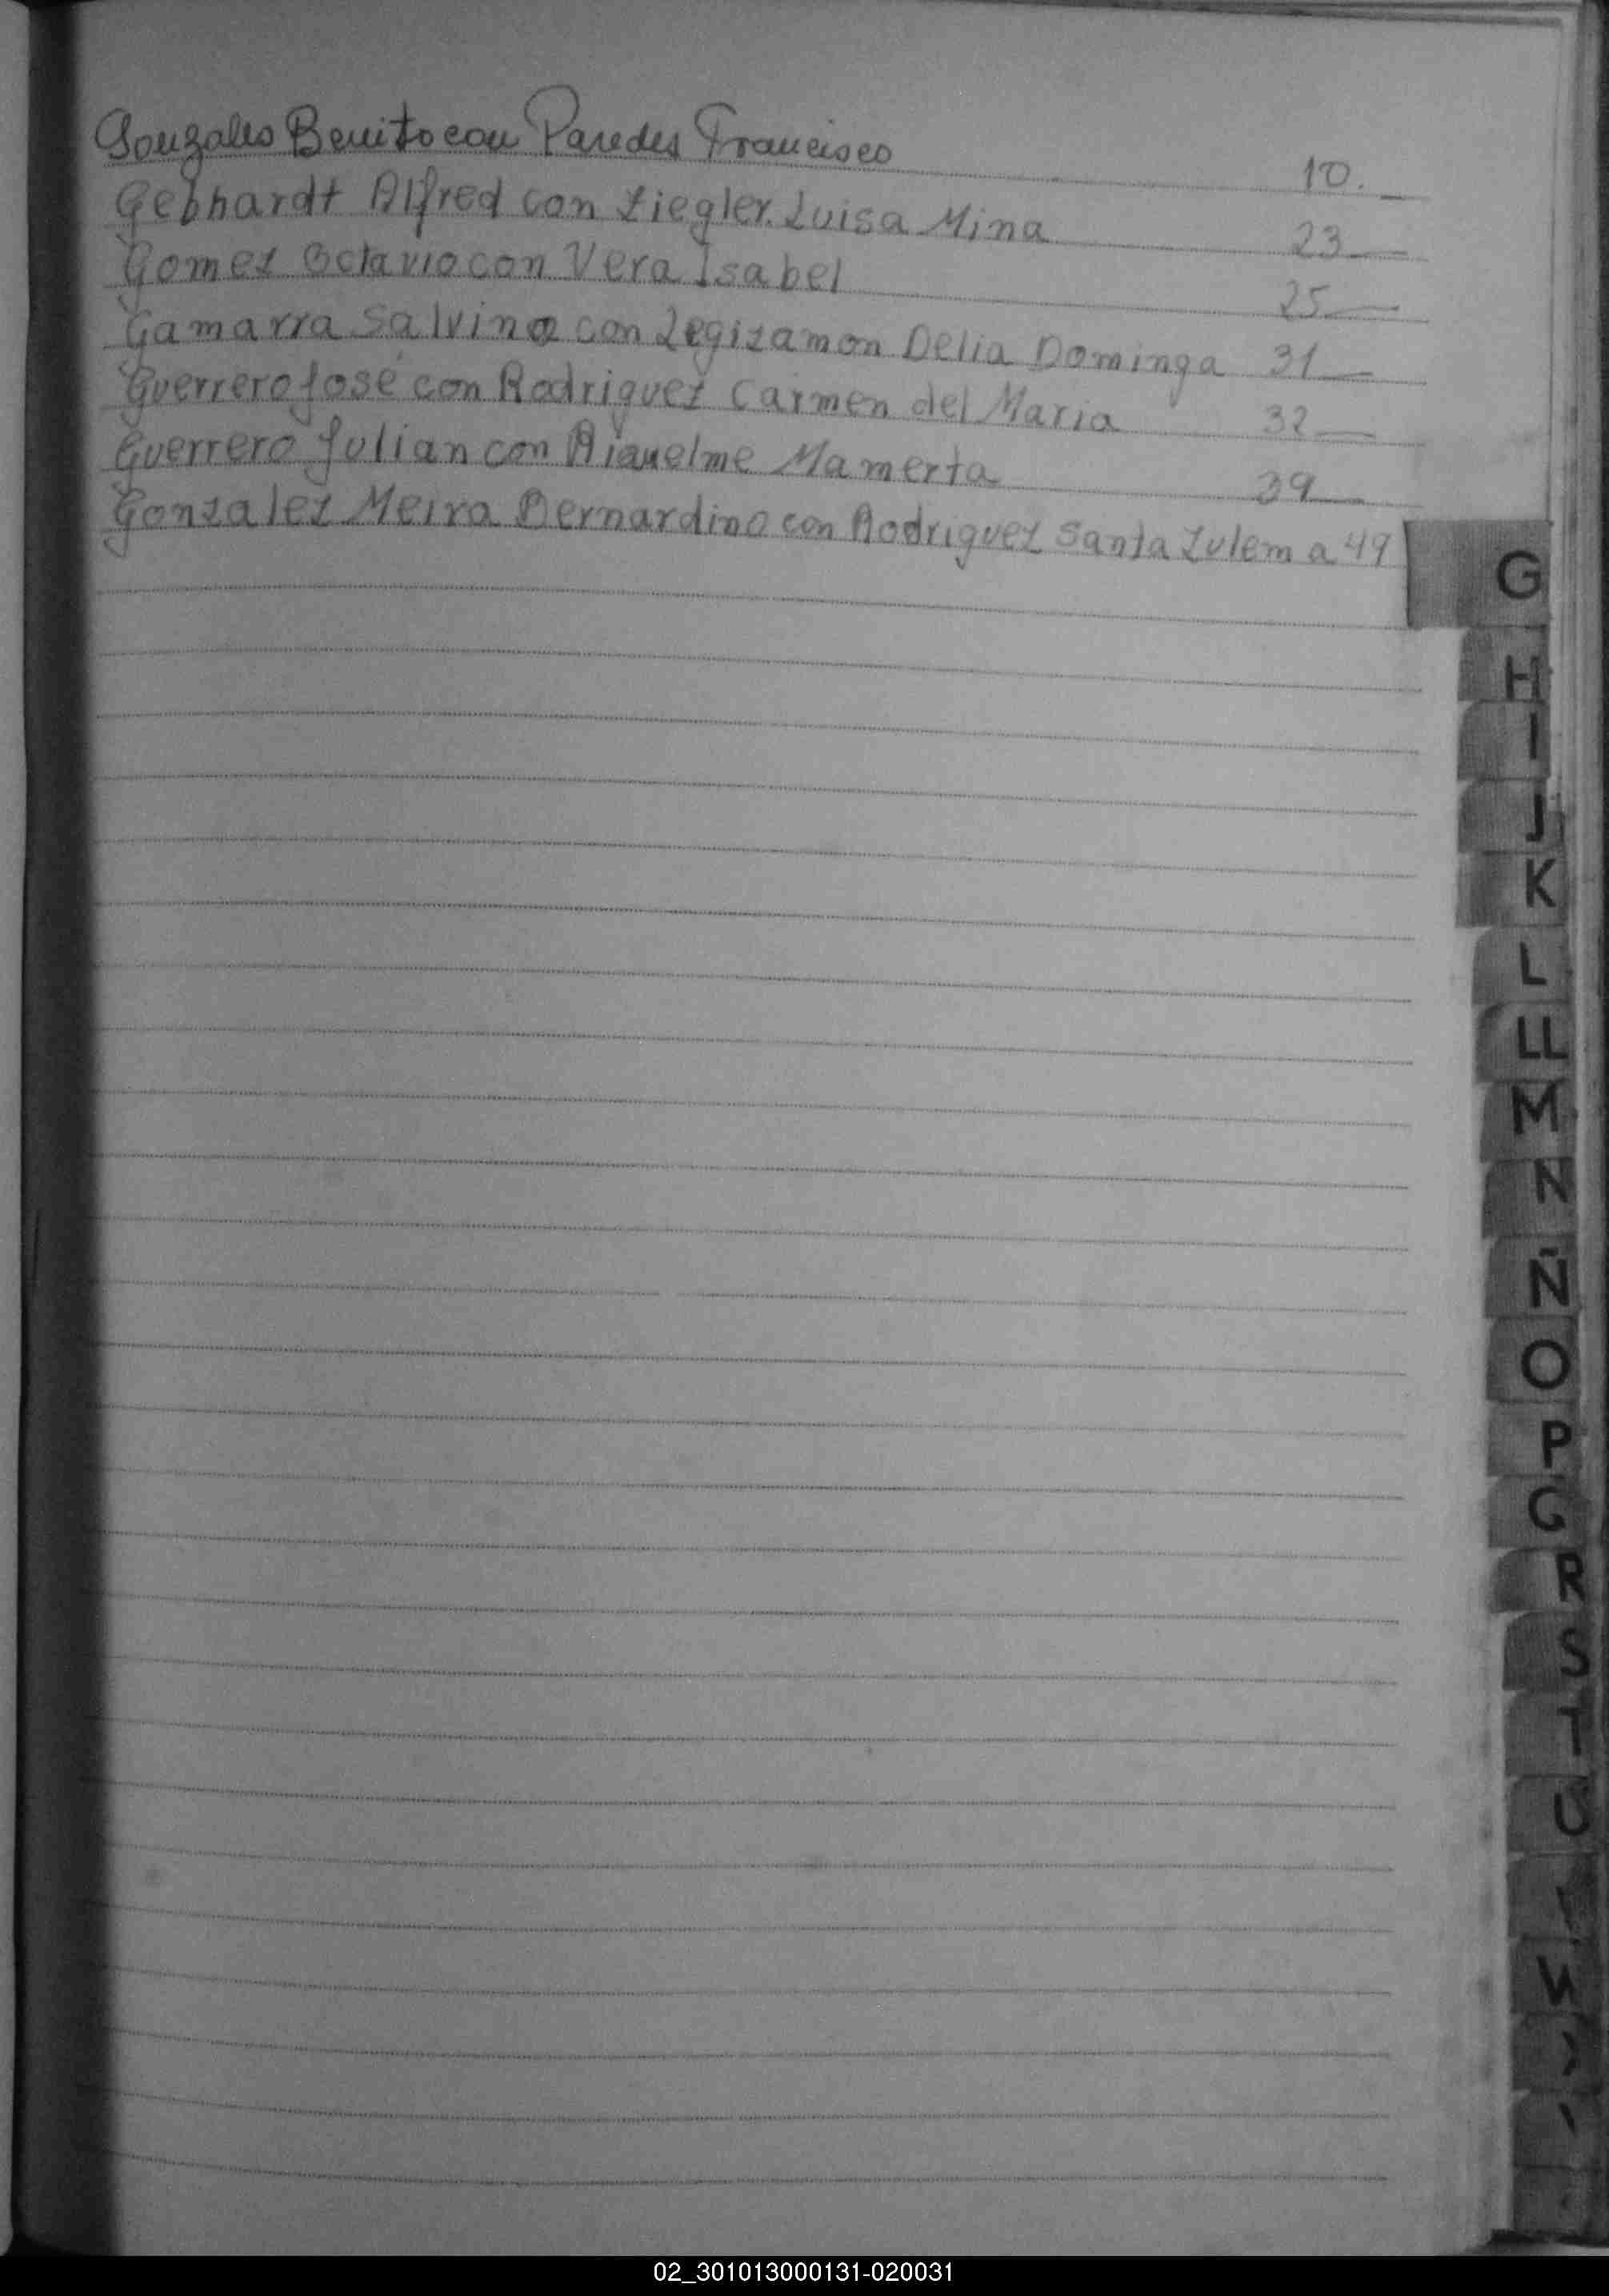 Gonzales Benito con Paredes Francisco 10.
Gebhardt Alfred con Ziegler. Luisa Mina 23
Gomez Octavio con Vera Isabel 25
Gamarra Salvino con Legizamon Delia Dominga 31
Guerrero José con Rodriguez Carmen del Maria 32
Guerrero Julian con Riquelme Mamerta 39
Gonzalez Meira Bernardino con Rodriguez Santa Zulema 49
G
H
I
J
K
L
LL
M
N
Ñ
O
P
R
S
T
U
W
02_301013000131-020031